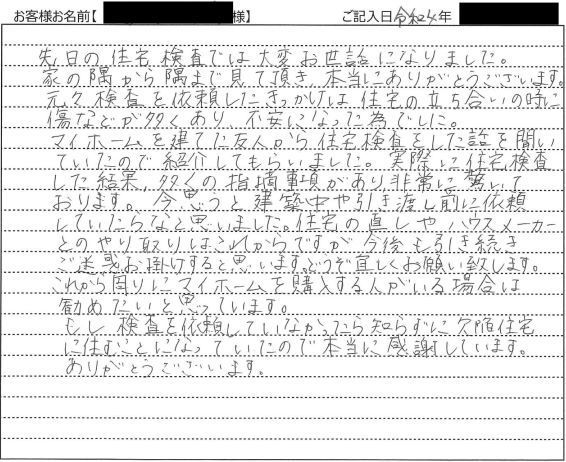 お客様お名前【 様】 ご記入日 令和4年
先日の住宅検査では大変お世話になりました。
家の隅から隅まで見て頂き、本当にありがとうございます。
元々検査を依頼したきっかけは住宅の立ち合いの時に
傷などが多くあり、不安になった為でした。
マイホームを建てた友人から住宅検査をした話を聞い
ていたので紹介してもらいました。実際に住宅検査
した結果、多くの指摘事項があり非常に驚いて
おります。今思うと建築中や引き渡し前に依頼
していたらなと思いました。住宅の直しやハウスメーカー
とのやり取りはこれからですが今後も引き続き
ご迷惑お掛けすると思います。どうぞ宜しくお願い致します。
これから周りにマイホームを購入する人がいる場合は
勧めたいと思っています。
もし検査を依頼していなかったら知らずに欠陥住宅
に住むことになっていたので本当に感謝しています。
ありがとうございます。